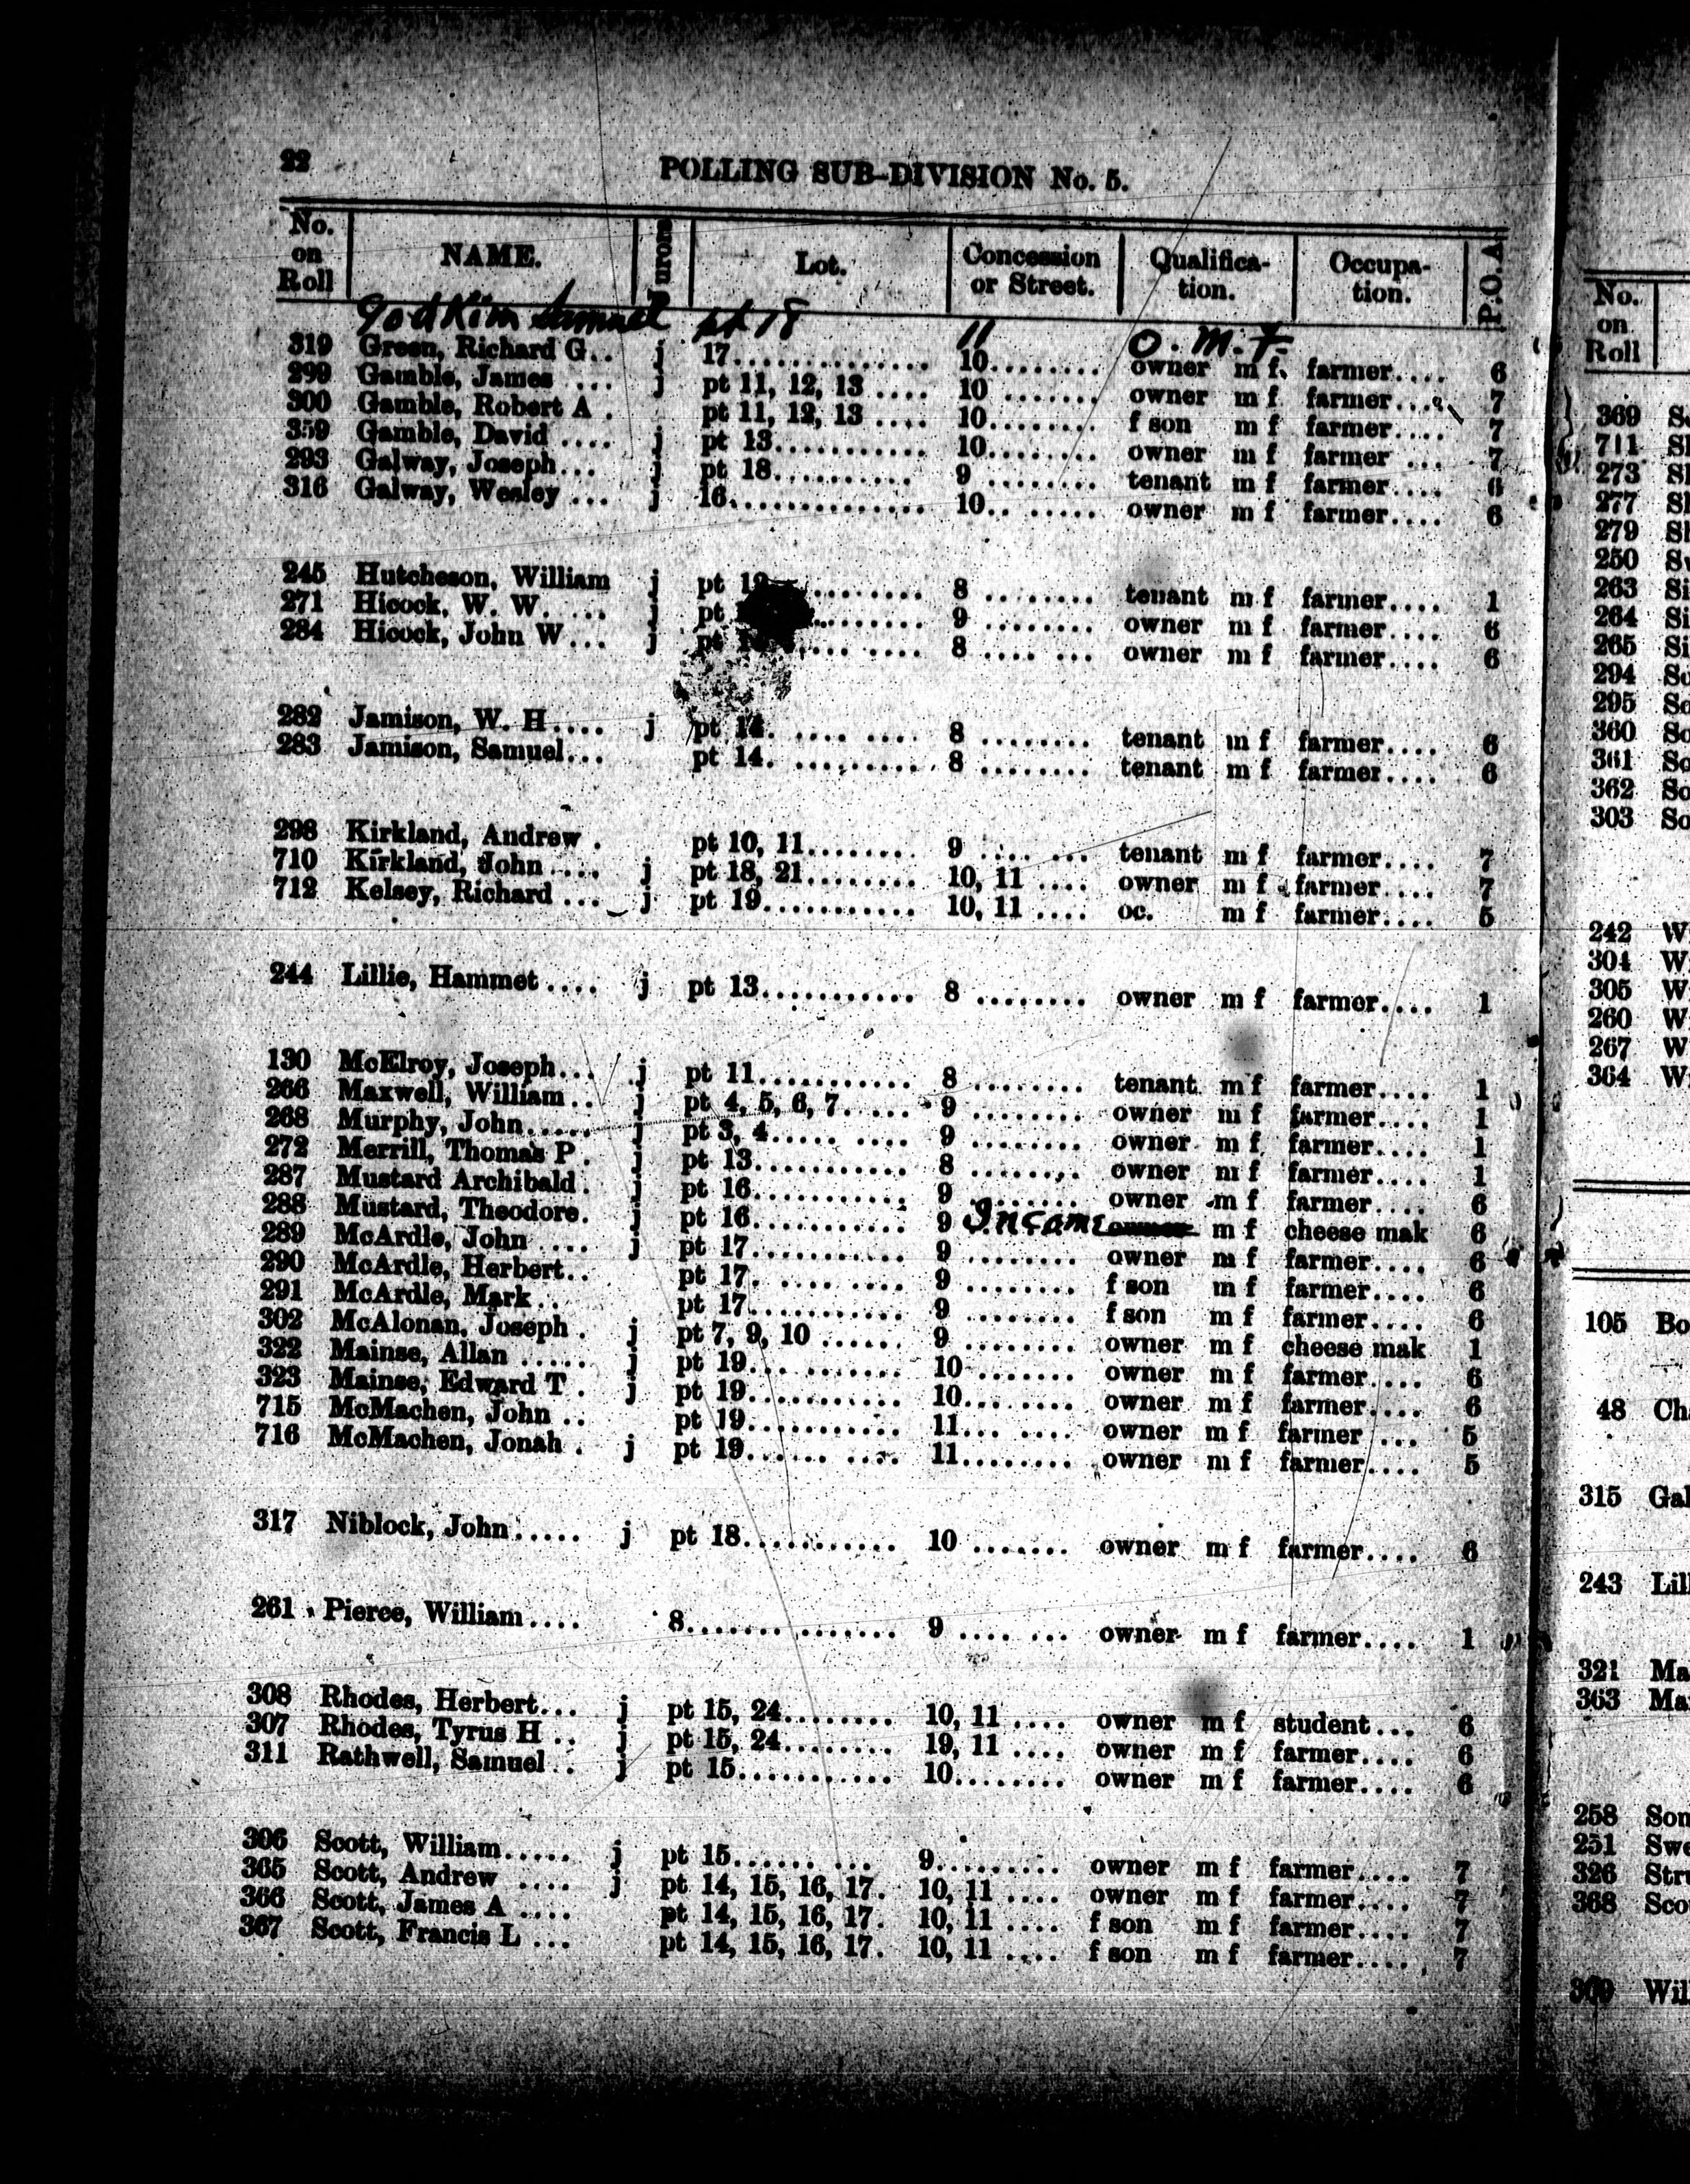 22 POLLING SUB-DIVISION No. 5.
No. on Roll NAME. Jurors Lot. Concession or Street. Qualifica-tion. Occupa-tion. P.O.A
Godkin Samuel pt 18 11 O. M. F.
319 Green, Richard G.. j 17............... 10........ owner m f farmer.... 6
299 Gamble, James .... j pt 11, 12, 13 .... 10 ....... owner m f farmer.... 7
300 Gamble, Robert A . pt 11, 12, 13 .... 10........ f son m f farmer.... 7
359 Gamble, David .... j pt 13........... 10........ owner m f farmer ... 7
293 Galway, Joseph... j pt 18........... 9 ........ tenant m f farmer.... 6
316 Galway, Wesley ... j 16.............. 10.. ..... owner m f farmer.... 6
245 Hutcheson, William j pt ........ 8 ........ tenant m f farmer.... 1
271 Hicock, W. W. .... j pt ........ 9 ........ owner m f farmer.... 6
284 Hicock, John W... j pt .... .... 8 .... ... owner m f farmer.... 6
282 Jamison, W. H.... j pt 14. .... .... 8 ........ tenant m f farmer.... 6
283 Jamison, Samuel... pt 14. ......... 8 ........ tenant m f farmer.... 6
298 Kirkland, Andrew . pt 10, 11........ 9 ..... ... tenant m f farmer.... 7
710 Kirkland, John .... j pt 18, 21........ 10, 11 .... owner m f farmer.... 7
712 Kelsey, Richard ... j pt 19........... 10, 11 .... oc. m f farmer.... 5
244 Lillie, Hammet .... j pt 13........... 8 ........ owner m f farmer.... 1
130 McElroy, Joseph... j pt 11............ 8 ........ tenant m f farmer.... 1
266 Maxwell, William.. j pt 4, 5, 6, 7..... 9 ........ owner m f farmer.... 1
268 Murphy, John..... j pt 3, 4..... .... 9 ........ owner m f farmer.... 1
272 Merrill, Thomas P . j pt 13........... 8 ........ owner m f farmer.... 1
287 Mustard Archibald. j pt 16........... 9 ........ owner m f farmer.... 6
288 Mustard, Theodore. j pt 16........... 9 Income owner m f cheese mak 6
289 McArdle, John .... j pt 17........... 9 ........ owner m f farmer.... 6
290 McArdle, Herbert.. pt 17. ......... 9 ........ f son m f farmer.... 6
291 McArdle, Mark.. pt 17............ 9 ........ f son m f farmer.... 6
302 McAlonan, Joseph . j pt 7, 9, 10 ...... 9 ........ owner m f cheese mak 1
322 Mainse, Allan ..... j pt 19... ....... 10 ....... owner m f farmer.... 6
323 Mainse, Edward T . j pt 19........... 10... .... owner m f farmer.... 6
715 McMachen, John .. pt 19........... 11... .... owner m f farmer ... 5
716 McMachen, Jonah . j pt 19...... .... 11........ owner m f farmer.... 5
317 Niblock, John..... j pt 18........... 10 ....... owner m f farmer.... 6
261 Pierce, William.... 8....... ....... 9 .... ... owner m f farmer.... 1
308 Rhodes, Herbert... j pt 15, 24........ 10, 11 .... owner m f student... 6
307 Rhodes, Tyrus H .. j pt 15, 24........ 19, 11 .... owner m f farmer.... 6
311 Rathwell, Samuel.. j pt 15........... 10........ owner m f farmer.... 6
306 Scott, William..... j pt 15...... ... 9......... owner m f farmer.... 7
365 Scott, Andrew .... j pt 14, 15, 16, 17. 10, 11 .... owner m f farmer.... 7
366 Scott, James A .... pt 14, 15, 16, 17. 10, 11 .... f son m f farmer.... 7
367 Scott, Francis L ... pt 14, 15, 16, 17. 10, 11 .... f son m f farmer.... 7
No. on Roll
369
711
273
277
279
250
263
264
265
294
295
360
361
362
303
242
304
305
260
267
364
105
48
315
243
321
363
258
251
326
368